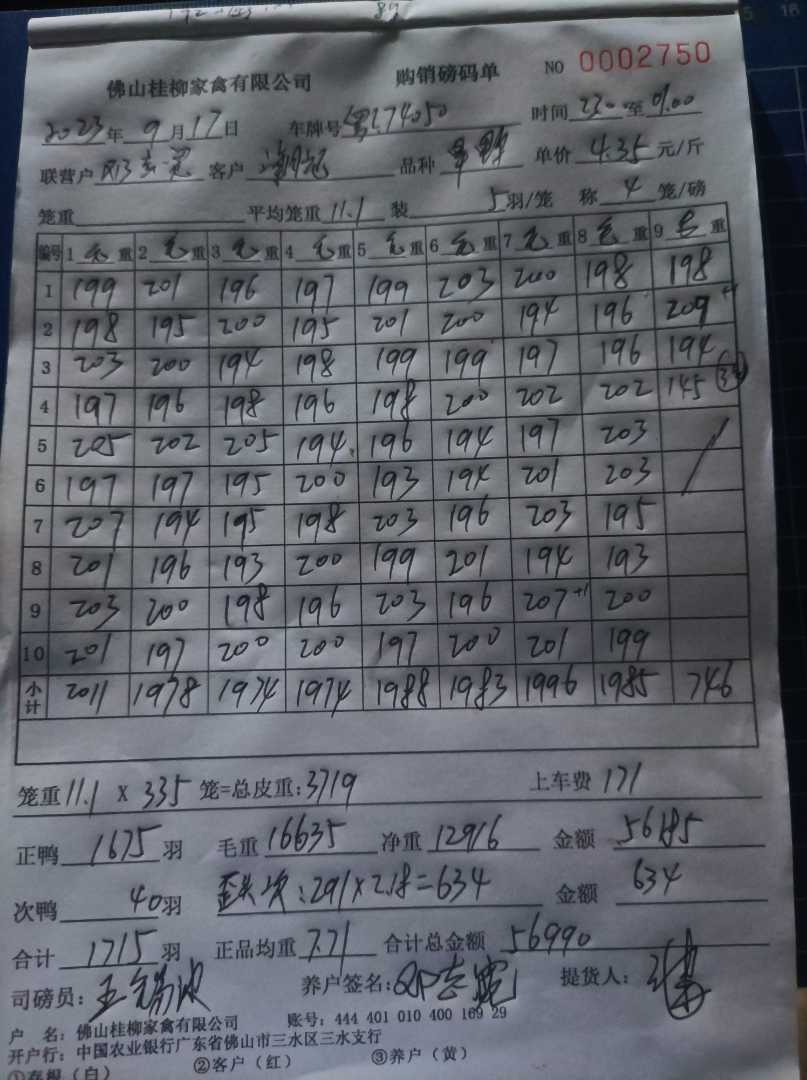 佛山桂柳家禽有限公司 购销磅码单 NO 0002750
2023年9月17日 车牌号 74050 时间 230 至 01.00
联营户 客户 品种 单价 4.35 元/斤
笼重 平均笼重 11.1 装 5 羽/笼 称 4 笼/磅
编号 1 毛 重 2 毛 重 3 毛 重 4 毛 重 5 毛 重 6 毛 重 7 毛 重 8 毛 重 9 毛 重
1 199 201 196 197 199 203 200 198 198
2 198 195 200 195 201 200 194 196 209
3 203 200 194 198 199 199 197 196 194
4 197 196 198 196 198 200 202 202 145
5 205 202 205 194 196 194 197 203
6 197 197 195 200 193 194 201 203
7 207 194 195 198 203 196 203 195
8 201 196 193 200 199 201 194 193
9 203 200 198 196 203 196 207 +1 200
10 201 197 200 200 197 200 201 199
小计 2011 1978 1974 1974 1988 1983 1996 1985 746
笼重 11.1 X 335 笼=总皮重: 3719 上车费 171
正鸭 1675 羽 毛重 16635 净重 12916 金额 56185
次鸭 40 羽 歪头次: 291×2.18=634 金额 634
合计 1715 羽 正品均重 7.71 合计总金额 56990
司磅员: 养户签名: 提货人:
户 名: 佛山桂柳家禽有限公司 账号: 444 401 010 400 169 29
开户行: 中国农业银行广东省佛山市三水区三水支行
①存根(白) ②客户(红) ③养户(黄)